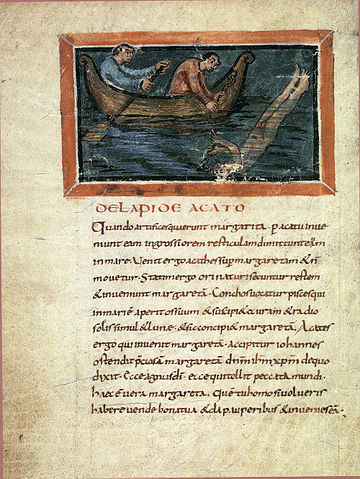 DE LAPIDE ACATO
Quando artifices querunt margarita. p acatu inue
niunt eam ingrossiorem resticulam dimittunt eam
in mare. Uenit ergo acathes sup margaretam & n
mouetur. Statim ergo orinatur secuntur restem
& inueniunt margaretā. Concho s uocatur piscesqui
in mari ē aperit os suum & suscipi & curam & radio
solis simul & lune. & sic concipi & margaretā. Acates
ergo qui inuenit margaretā. accipitur iohannes
ostendit p ciosā margaretā dnm ihm xpm de quo
dixit. Ecce agnus di. ecce qui tollit peccata mundi.
haec ē uera margareta. Quē tu homo si uolueris
habere uende bona tua & da pauperibus & inuenies eā.